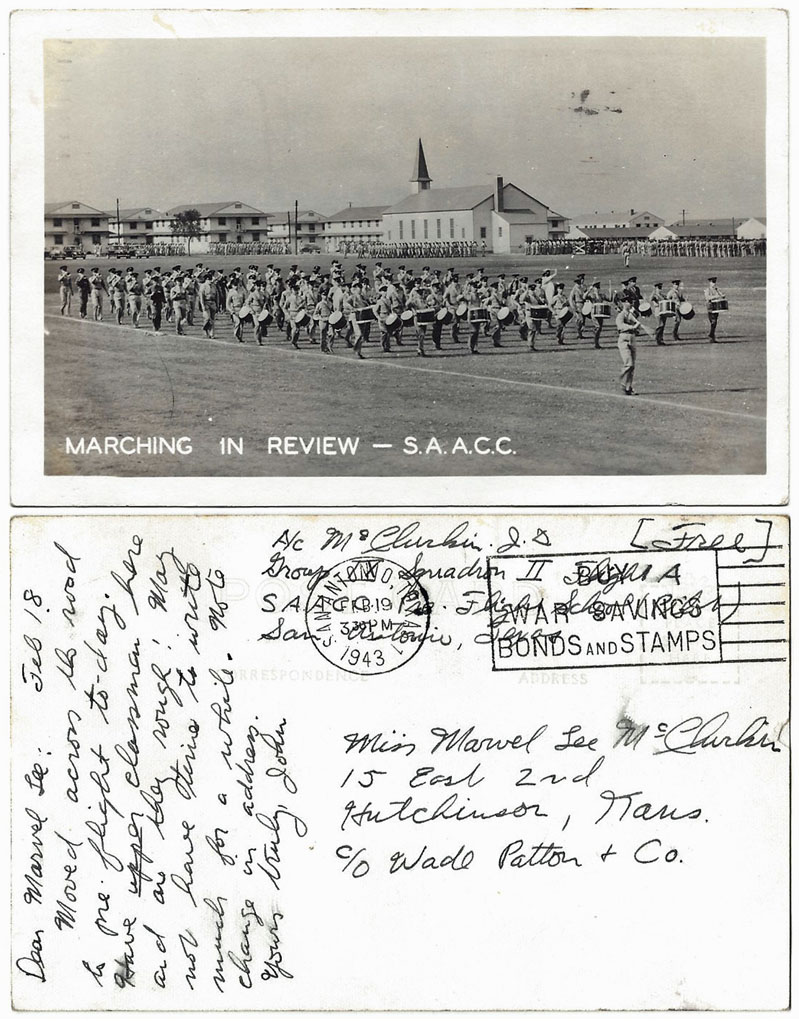 MARCHING IN REVIEW — S.A.A.C.C.
A/c McClurkin, J. D [Free]
Group Squadron II Flight A
S.A.A.C.C. Pre. Flight School (Pilot)
San Antonio, Texas
SAN ANTONIO, TEXAS
FEB 19
330 PM
1943
BUY
WAR SAVINGS
BONDS AND STAMPS
POST CARD
CORRESPONDENCE
ADDRESS
Dear Marvel Lee: Feb 18
Moved across the road
to pre flight to-day.
Have upper classmen here
and are they rough! May
not have time to write
much for a while. Note
change in address.
Yours truly, John
Miss Marvel Lee McClurkin
15 East 2nd
Hutchinson, Kans.
c/o Wade Patton & Co.